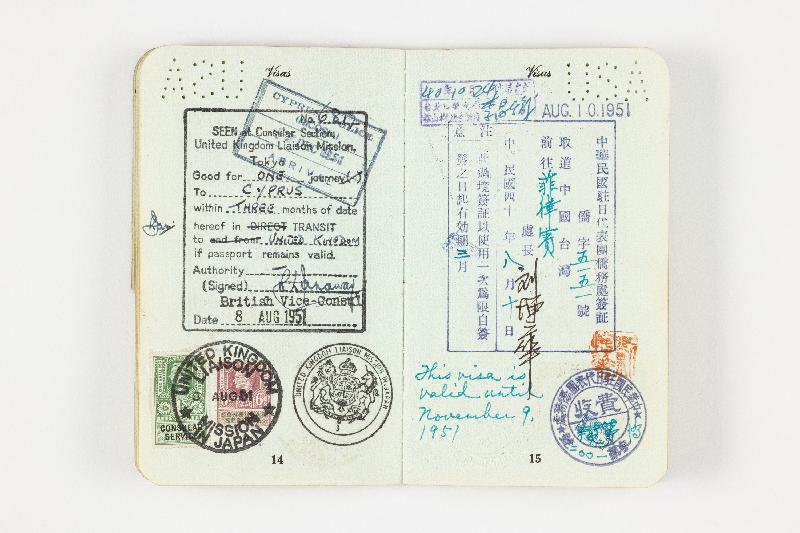 Visas
SEEN at Consular Section,
United Kingdom Liaison Mission,
Tokyo
Good for ONE journey(s)
To CYPRUS
within THREE months of date
hereof in DIRECT TRANSIT
to and from UNITED KINGDOM
if passport remains valid.
Authority
(Signed)
British Vice-Consul
Date 8 AUG 1951
CYPRUS POLICE
1951
ARRIVAL
UNITED KINGDOM
LIAISON
AUG 51
MISSION
IN JAPAN
CONSULAR
SERVICE
UNITED KINGDOM LIAISON MISSION IN JAPAN
14
Visas
USA
40.10.24
AUG 10 1951
中華民國駐日代表團僑務處簽証
僑字五一五一號
取道中國台灣
前往菲律賓
處長
中華民國四十年八月十日
註 此過境簽証以使用一次為限自簽
發之日起有効期三月
This visa is
valid until
November 9,
1951
收費
15